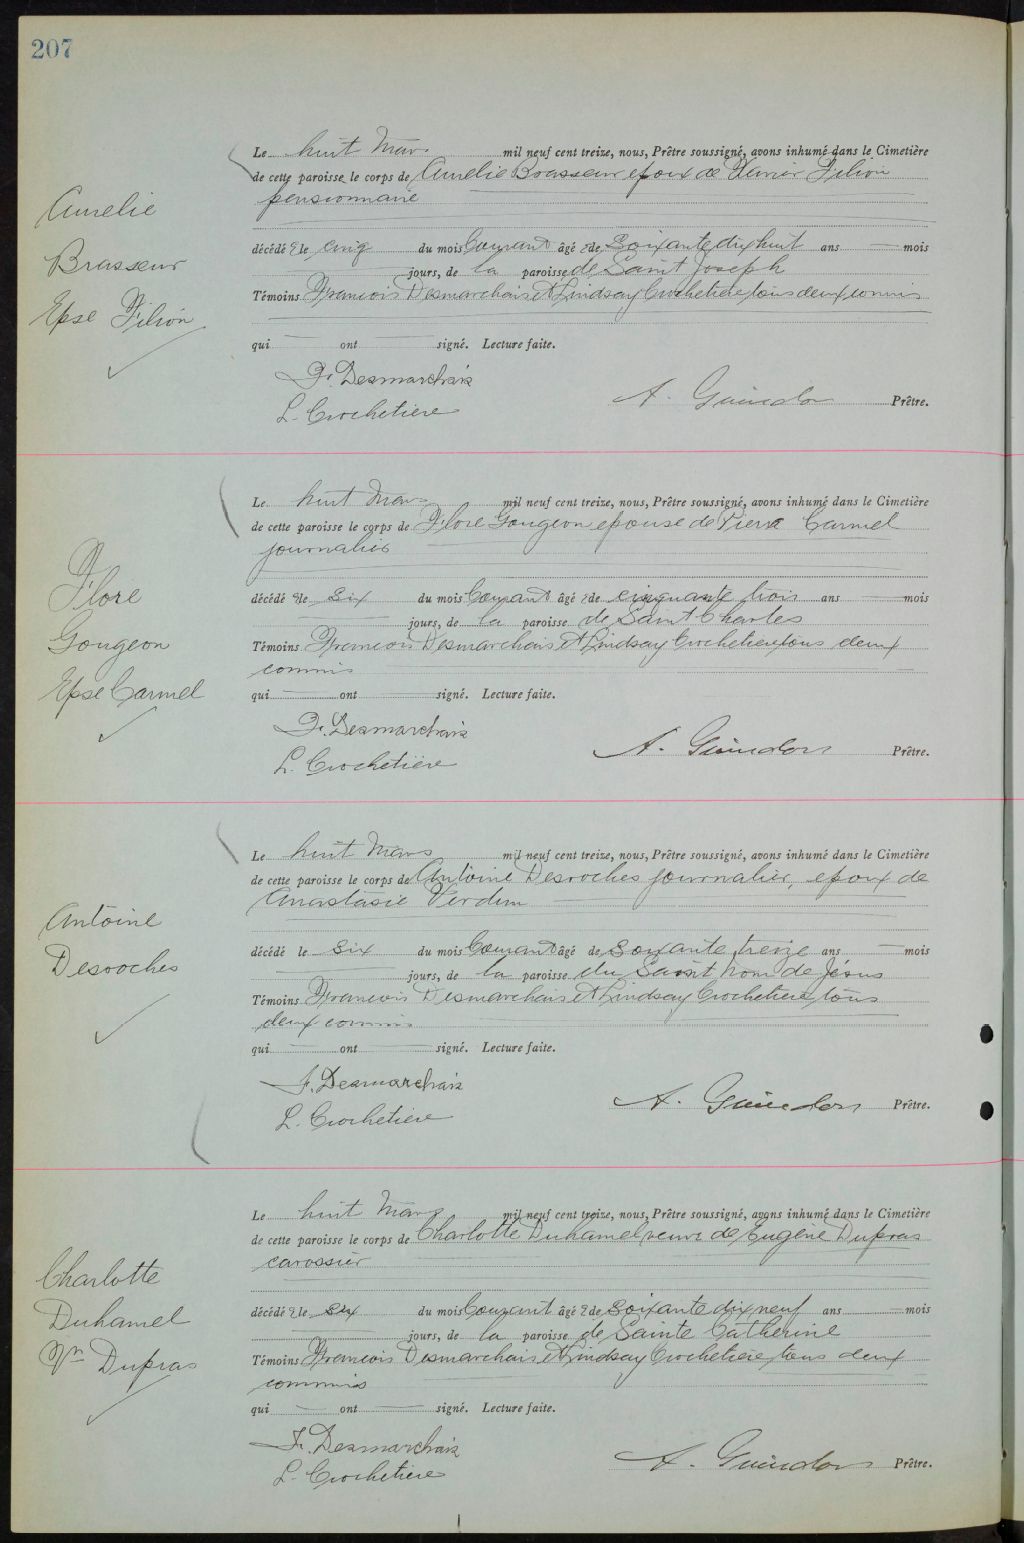 207
Le huit Mars mil neuf cent treize, nous, Prêtre soussigné, avons inhumé dans le Cimetière
de cette paroisse le corps de Aurelie Brasseur epoux de Xavier Filion
pensionnaire
Aurelie
Brasseur
Epse Filion
décédé e le cinq du mois Courant âgé e de Soixante dix huit ans — mois
jours, de la paroisse de Saint Joseph
Témoins Francois Desmarchais et Lindsay Crochetiere tous deux commis
qui — ont — signé. Lecture faite.
Fr. Desmarchais
L. Crochetière
A. Guindon Prêtre.
Le huit Mars mil neuf cent treize, nous, Prêtre soussigné, avons inhumé dans le Cimetière
de cette paroisse le corps de Flore Gougeon epouse de Pierre Carmel
journalier
Flore
Gougeon
Epse Carmel
décédé e le Six du mois Courant âgé e de cinquante trois ans — mois
jours, de la paroisse de Saint Charles
Témoins Francois Desmarchais et Lindsay Crochetiere tous deux
commis
qui — ont — signé. Lecture faite.
Fr. Desmarchais
L. Crochetière
A. Guindon Prêtre.
Le huit Mars mil neuf cent treize, nous, Prêtre soussigné, avons inhumé dans le Cimetière
de cette paroisse le corps de Antoine Desroches journalier, epoux de
Anastasie Verdun
Antoine
Desroches
décédé le Six du mois Courant âgé de Soixante treize ans — mois
jours, de la paroisse du Saint Nom de Jésus
Témoins Francois Desmarchais et Lindsay Crochetiere tous
deux commis
qui — ont — signé. Lecture faite.
F. Desmarchais
L. Crochetière
A. Guindon Prêtre.
Le huit Mars mil neuf cent treize, nous, Prêtre soussigné, avons inhumé dans le Cimetière
de cette paroisse le corps de Charlotte Duhamel veuve de Eugène Dupras
carossier
Charlotte
Duhamel
Ve Dupras
décédé e le Six du mois Courant âgé e de Soixante dix neuf ans — mois
jours, de la paroisse de Sainte Catherine
Témoins Francois Desmarchais et Lindsay Crochetiere tous deux
commis
qui — ont — signé. Lecture faite.
Fr. Desmarchais
L. Crochetiere
A. Guindon Prêtre.